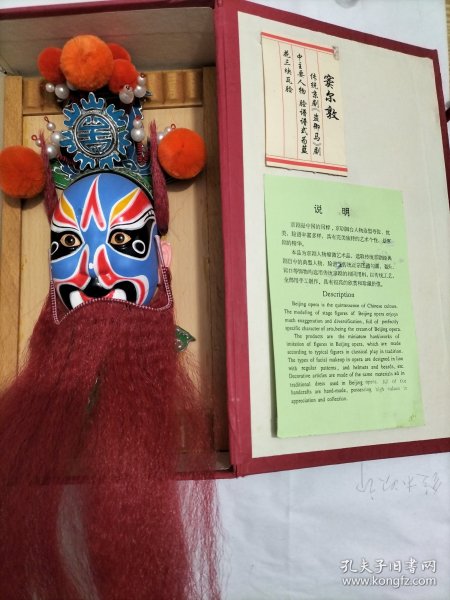 窦尔敦
传统京剧《盗御马》剧
中主要人物 脸谱谱式为蓝
花三块瓦脸
说 明
京剧是中国的国粹,京剧舞台人物造型夸张、优
Description
Beijing opera is the quintessence of Chinese culture.
The modeling of stage figures of Beijing opera enjoys
much exaggeration and diversification, full of perfectly
specific character of arts, being the cream of Beijing opera.
The products are the miniature handiworks of
imitation of figures in Beijing opera, which are made
according to typical figures in classical play in tradition.
The types of facial makeup in opera are designed in line
with regular patterns, and helmets and beards, etc.
Decorative articles are made of the same materials as in
traditional dress used in Beijing opera. All of the
handcrafts are hand-made, possessing high values in
appreciation and collection.
孔夫子旧书网
www.kongfz.com